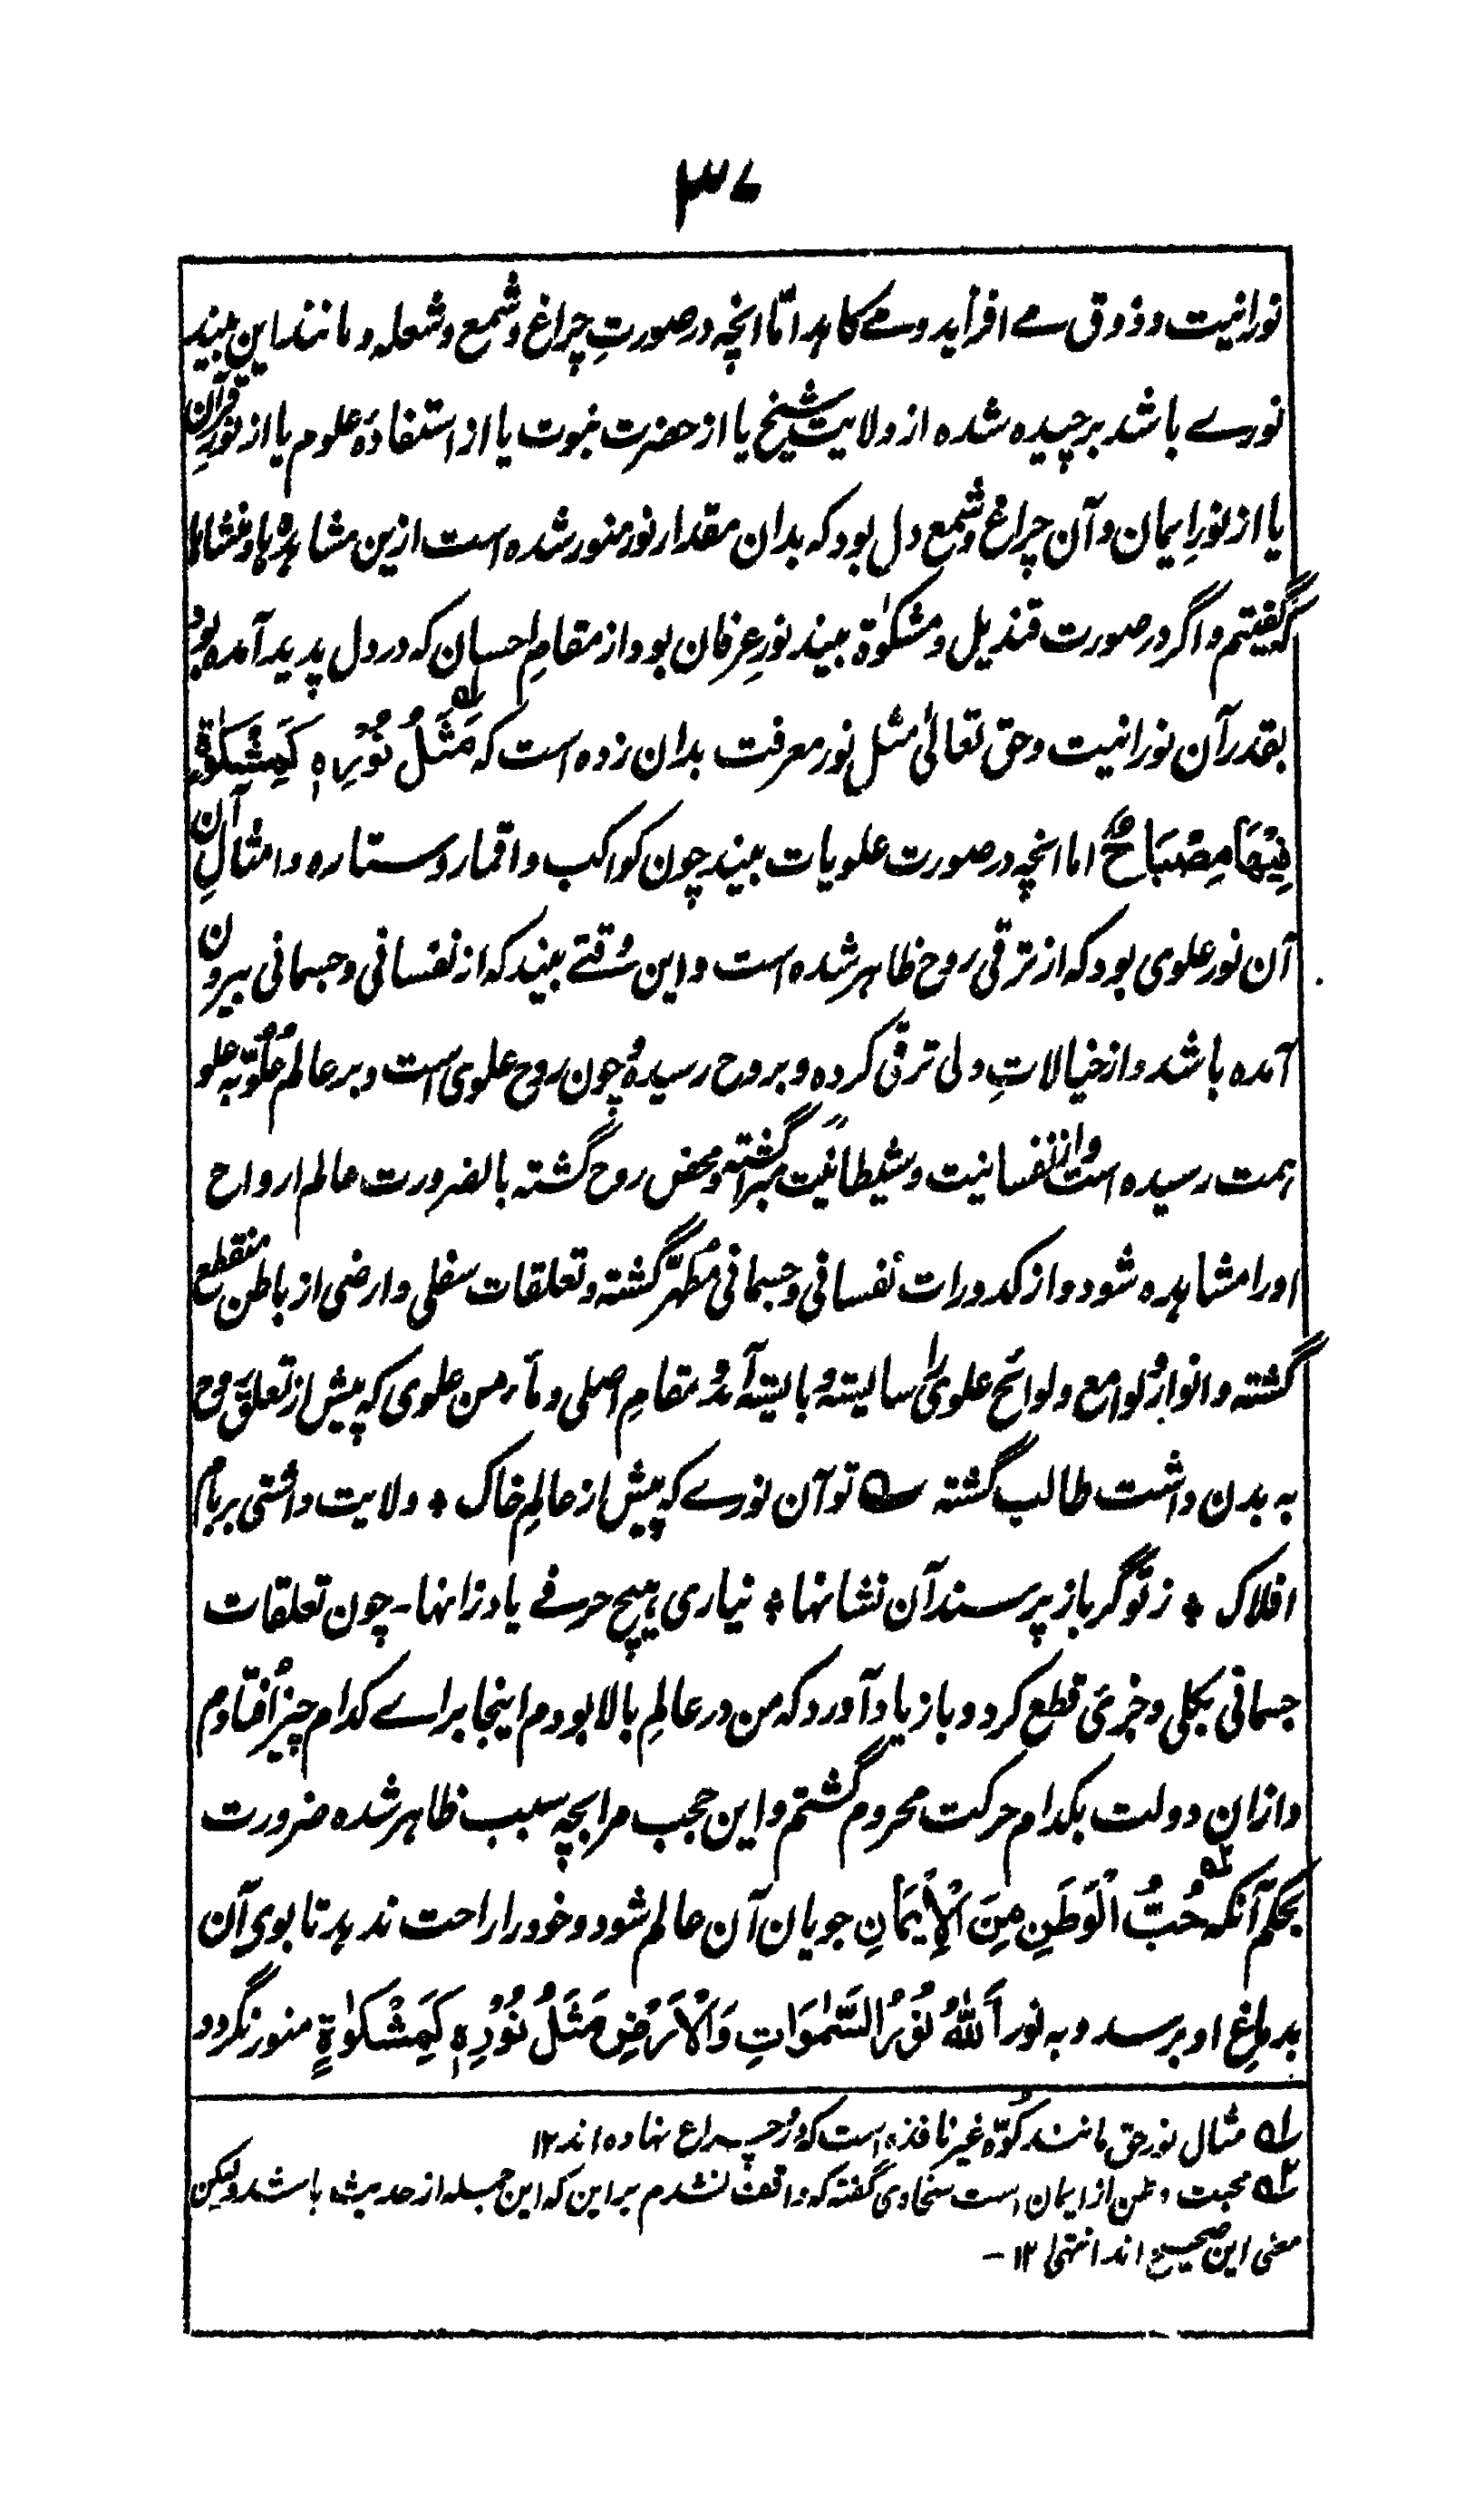 ۳۷
نورانیت و ذوق مے افزاید و مے کاهد اما انچه در صورتِ چراغ و شمع و شعله و مانند این بیند
نورے باشد برچیده شده از ولایت شیخ یا از حضرت نبوت یا از استفادۂ علوم یا از نورِ قرآن
یا از نورِ ایمان و آن چراغ و شمع دل بود که بدان مقدار نور منور شده است ازین مشاہدہا و نشانہا
گفتیم و اگر در صورت قندیل و مشکوٰة بیند نورِ عرفان بود از مقامِ احسان که در دل پدید آمدہ بود
بقدر آن نورانیت و حق تعالیٰ مثل نور معرفت بدان زده است که مَثَلُ نُوْرِهٖ کَمِشْکٰوةٍ
فِیْهَا مِصْبَاحٌ اما انچه در صورت علویات بیند چون کواکب و اقمار و ستاره و امثالِ آن
آن نور علوی بود که از ترقی روح ظاہر شده است و این وقتے بیند که از نفسانی و جسمانی بیرون
آمده باشد و از خیالاتِ دلی ترقی کرده و بروح رسیدہ و چون روح علوی است و بر عالم عُلُوّ بہ علو
ہمت رسیده است و از نفسانیت و شیطانیت مبرا گشتہ و محض روح گشته بالضرورت عالم ارواح
اورا مشاہده شود و از کدورات نفسانی و جسمانی مُطَہَّر گشته و تعلقات سفلی و ارضی از باطن منقطع
گشته و انوار و لوامع و لوائح علوی را سایسته و بایسته آمد و مقامِ اصلی و مأمن علوی که پیش از تعلق روح
به بدن داشت طالب گشته ؎ تو آن نورے که پیش از عالمِ خاک * ولایت داشتی بر بام
افلاک * ز تو گر باز پرسند آن نشانها * نیاری ہیچ حرفے یاد زانها - چون تعلقات
جسمانی بکلی و جزئی قطع کرد و باز یاد آورد که من در عالمِ بالا بودم اینجا براے کدام چیز اُفتادم
و ازان دولت بکدام حرکت محروم گشتم و این حجب مرا بچه سبب ظاہر شده ضرورت
بحکم آنکه حُبُّ الْوَطَنِ مِنَ الْاِیْمَانِ جویان آن عالم شود و خود را راحت ندہد تا بوی آن
بدماغ او برسد و به نور اَللّٰهُ نُوْرُ السَّمٰوَاتِ وَالْاَرْضِ مَثَلُ نُوْرِهٖ کَمِشْکٰوةٍ منور نگردد
۱ مثال نور حق مانند کُوّہ غیر نافذہ است که در و چراغ نهاده اند ۱۲
۲ محبت وطن از ایمان است سخاوی گفته که واقف نشدم بر این که این جمله از حدیث باشد ولیکن
معنی این صحیح اند انتهی ۱۲ -